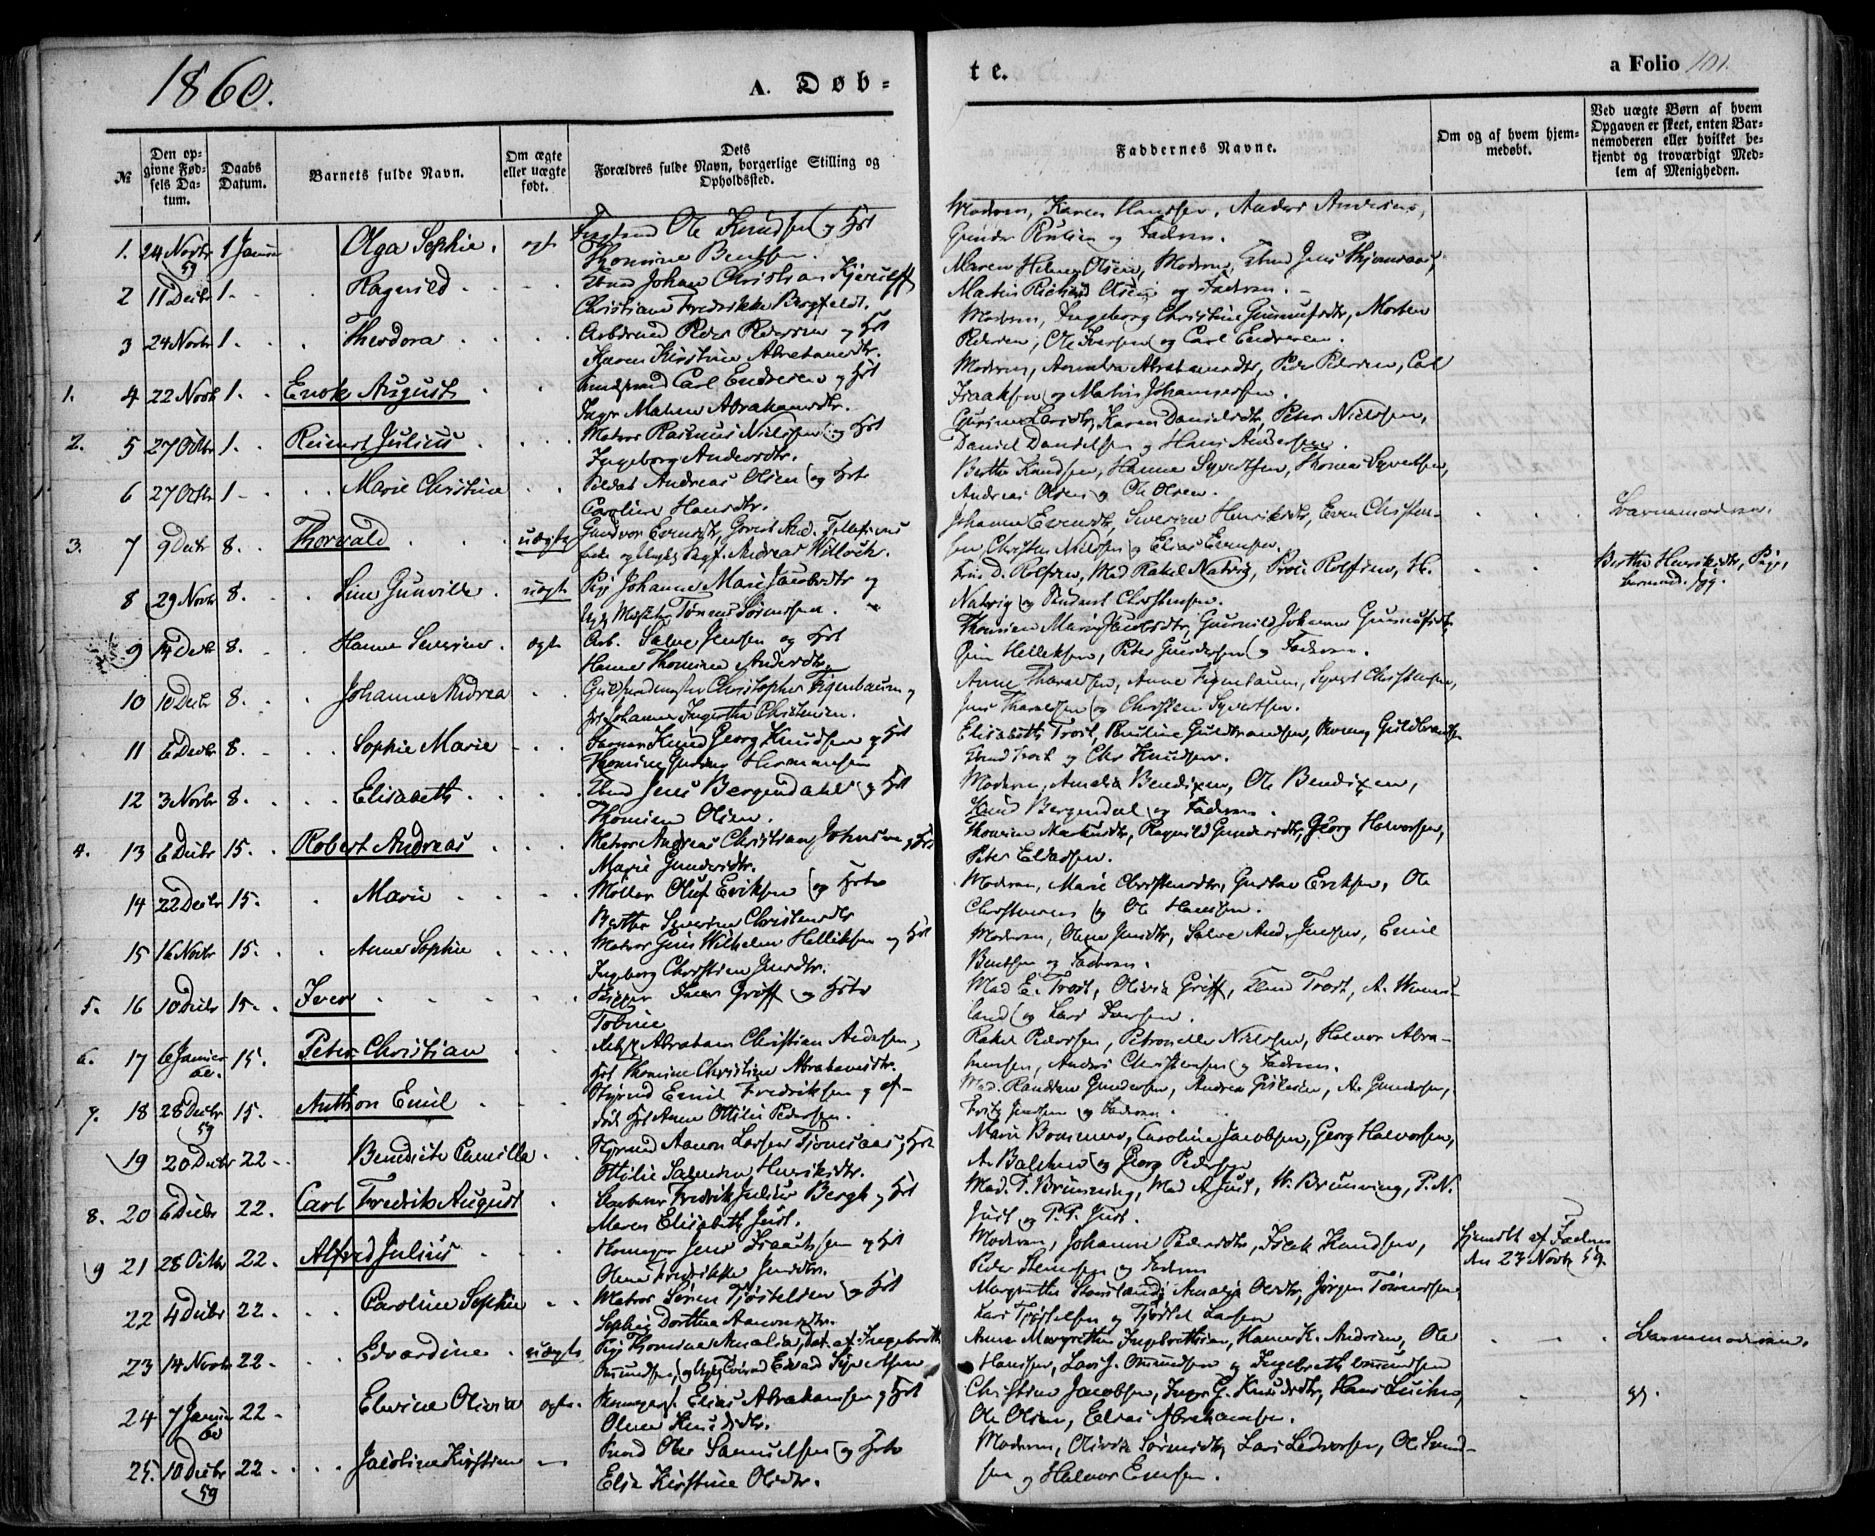 1860.
A. Døb-
te.
a Folio 101.
№
Den op-
givne Fød-
sels Da-
tum.
Daabs
Datum.
Barnets fulde Navn.
Om ægte
eller uægte
født.
Dets
Forældres fulde Navn, borgerlige Stilling og
Opholdssted.
Faddernes Navne.
Om og af hvem hjem-
medøbt.
Ved uægte Børn af hvem
Opgaven er skeet, enten Bar-
nemoderen eller hvilket be-
kjendt og troværdigt Med-
lem af Menigheden.
1. 24 Novbr 59 1 Januar Olga Sophie. ægte Ole Knudsen og Hst
Thomine Bentsen.
Modren, Karen Hanssen, Anders Andersens,
Gunder Poulsen og Faderen.
2 11 Decbr 1. Ragnild Johan Christian Kjerulff
Christiane Fredrikke Bergfeldt.
Maren Helene Olsen, Modren, Jens Thjømsaas,
Martin Richard Olsen og Faderen.
3 24 Novbr 1. Theodora Arbdsmd Peder Pedersen og Hst
Karen Kirstine Abrahamsdtr.
Modren, Ingeborg Christine Gunnufsdtr, Morten
Pedersen, Ole Iversen og Carl Endresen.
1. 4 22 Novbr 1. Enok August Carl Endresen og Hst
Inger Malene Abrahamsdtr.
Modren, Amalia Abrahamsdtr, Peder Pedersen, Carl
Isaaksen og Mathis Johannessen.
2. 5 27 Octbr 1. Reinert Julius Matros Rasmus Nielssen og Hst
Ingeborg Andersdtr.
Gurine Larsdtr, Karen Danielsdtr, Peter Nielssen,
Daniel Danielsen og Hans Andersen.
6 27 Octbr 1. Marie Christine Soldat Andreas Olsen og Hst
Caroline Hansdtr.
Berthe Knudsen, Hanne Syvertsen, Thomas Syvertsen,
Andreas Olsen og Ole Olsen.
3. 7 9 Decbr 8. Thorvald uægte Gundvor Evensdtr,
og Andreas Willoch.
Johanne Evensdtr, Severine Henriksdtr, Even Christen-
sen, Christen Nielssen og Elias Evensen.
Barnemodren.
8 29 Novbr 8. Sine Gunvilde uægte Pige Johanne Marie Jacobsdtr og
Tønnes Sørenssen.
D. Rolfsen, Mad Rakel Natvig, Rolfsen, H.
Natvig og Student Christensen.
Berthe Henriksdtr, Pige,
9 14 Decbr 8. Hanne Severine ægte Arb. Salve Jensen og Hst
Hanne Thomine Andersdtr.
Thomine Marie Jacobsdtr, Gunvild Johanne Gunnufsdtr,
Helleksen, Peter Gundersen og Faderen.
10 10 Decbr 8. Johanne Andrea Christopher Figenbaum og
Hst Johanne Ingertha Christensen.
Anne Tharaldsen, Anne Figenbaum, Syvert Christensen,
Jens Tharaldsen og Christen Syvertsen.
11 6 Decbr 8. Sophie Marie Knud Georg Knudsen og Hst
Thomine Hermansen
Elisabeth Trost, Pauline Guldbrandsen, Guldbrandsen
Trost og Chr Knudsen.
12 3 Novbr 8. Elisabeth Jens Bergendahl og Hst
Thomine Olsen.
Modren, Amalia Bendixen, Ole Bendixen,
Knud Bergendal og Faderen.
4. 13 6 Decbr 15. Robert Andreas Matros Andreas Christian Johnsen og Hst
Marie Gundersdtr.
Thomine Markusdtr, Ragnild Gundersdtr, Georg Halvorsen,
Peter Eliassen.
14 22 Decbr 15. Marie Møller Oluf Eriksen og Hst
Berthe Severine Christensdtr
Modren, Marie Christensdtr, Gustav Eriksen, Ole
Christensen og Ole Hanssen.
15 16 Novbr 15. Anne Sophie Matros Jens Wilhelm Helliksen og Hst
Ingeborg Christine Jensdtr.
Modren, Olene Jensdtr, Salve And. Jensen, Emil
Bentsen og Faderen.
5. 16 10 Decbr 15. Iver Skipper Iver Griff og Hst
Tobine
Mad E. Trost, Olivia Griff, Trost, A. Woms-
land og Lars Iversen.
6. 17 6 Januar 60. 15. Peter Christian Abraham Christian Andersen,
Hst Thomine Christine Abrahamsdtr.
Rakel Pederssen, Petronelle Nielssen, Halvor Abra-
hamsen, Anders Christensen og Faderen.
7. 18 28 Decbr 59 15. Anthon Emil Styrmd Emil Fredriksen og af-
døde Hst Anne Ottilie Pedersen.
Mad. Randine Gundersen, Andrea A. Gundersen,
Fritz Jenssen og Faderen.
19 20 Decbr 22. Benedicte Camilla Styrmd Aanon Larsen Tjømsaas, Hst
Ottilie Salomine Henriksdtr.
Marie Caroline Jacobsen, Georg Halvorsen,
A. Balchen og Georg Pedersen
8. 20 6 Decbr 22. Carl Fredrik August Fredrik Julius Bergh og Hst
Maren Elisabeth Just.
Mad. T. Brünning, Mad A Just, W. Brünning, P. N.
Just og P. P. Just.
9 21 28 Octbr 22. Alfred Julius Jens Isaachsen og Hst
Olene Fredrikke Jensdtr.
Modren, Johanne Pedersdtr, Isak Knudsen,
Peder og Faderen
hjemdbt af Faderen
den 27 Novbr 59.
22 4 Decbr 22. Caroline Sophie Matros Søren Tjøstelsen og Hst
Sophie Dorthea Aanonsdtr.
Margrethe Amalia Olsdtr, Jørgen Tønnessen
Lars Tjøstelsen og Tjøstel Larsen
23 14 Novbr 22. Edvardine uægte Pige Thomine Amalia, Dat. af Ingebreth
Omundsen, og Edvard Syvertsen
Anne Margrethe Ingebrethsen, Hanne K. Andersen, Ole
Hanssen, Lars G. Omundsen og Ingebreth Omundsen
Barnemodren.
24 7 Januar 60 22. Elevine Olivia ægte. Elias Abrahamsen og Hst
Olene Knudsdtr.
Christine Jacobsen, Inger G. Knudsdtr, Hans
Ole Olsen, Elias Abrahamsen.
25. 10 Decbr 59 22. Jacobine Kirstine Ole Samuelsen og Hst
Elise Kirstine Olsdtr.
Modren, Olivia Sørensdtr, Lars Ledvorsen, Ole
sen og Halvor Evensen.